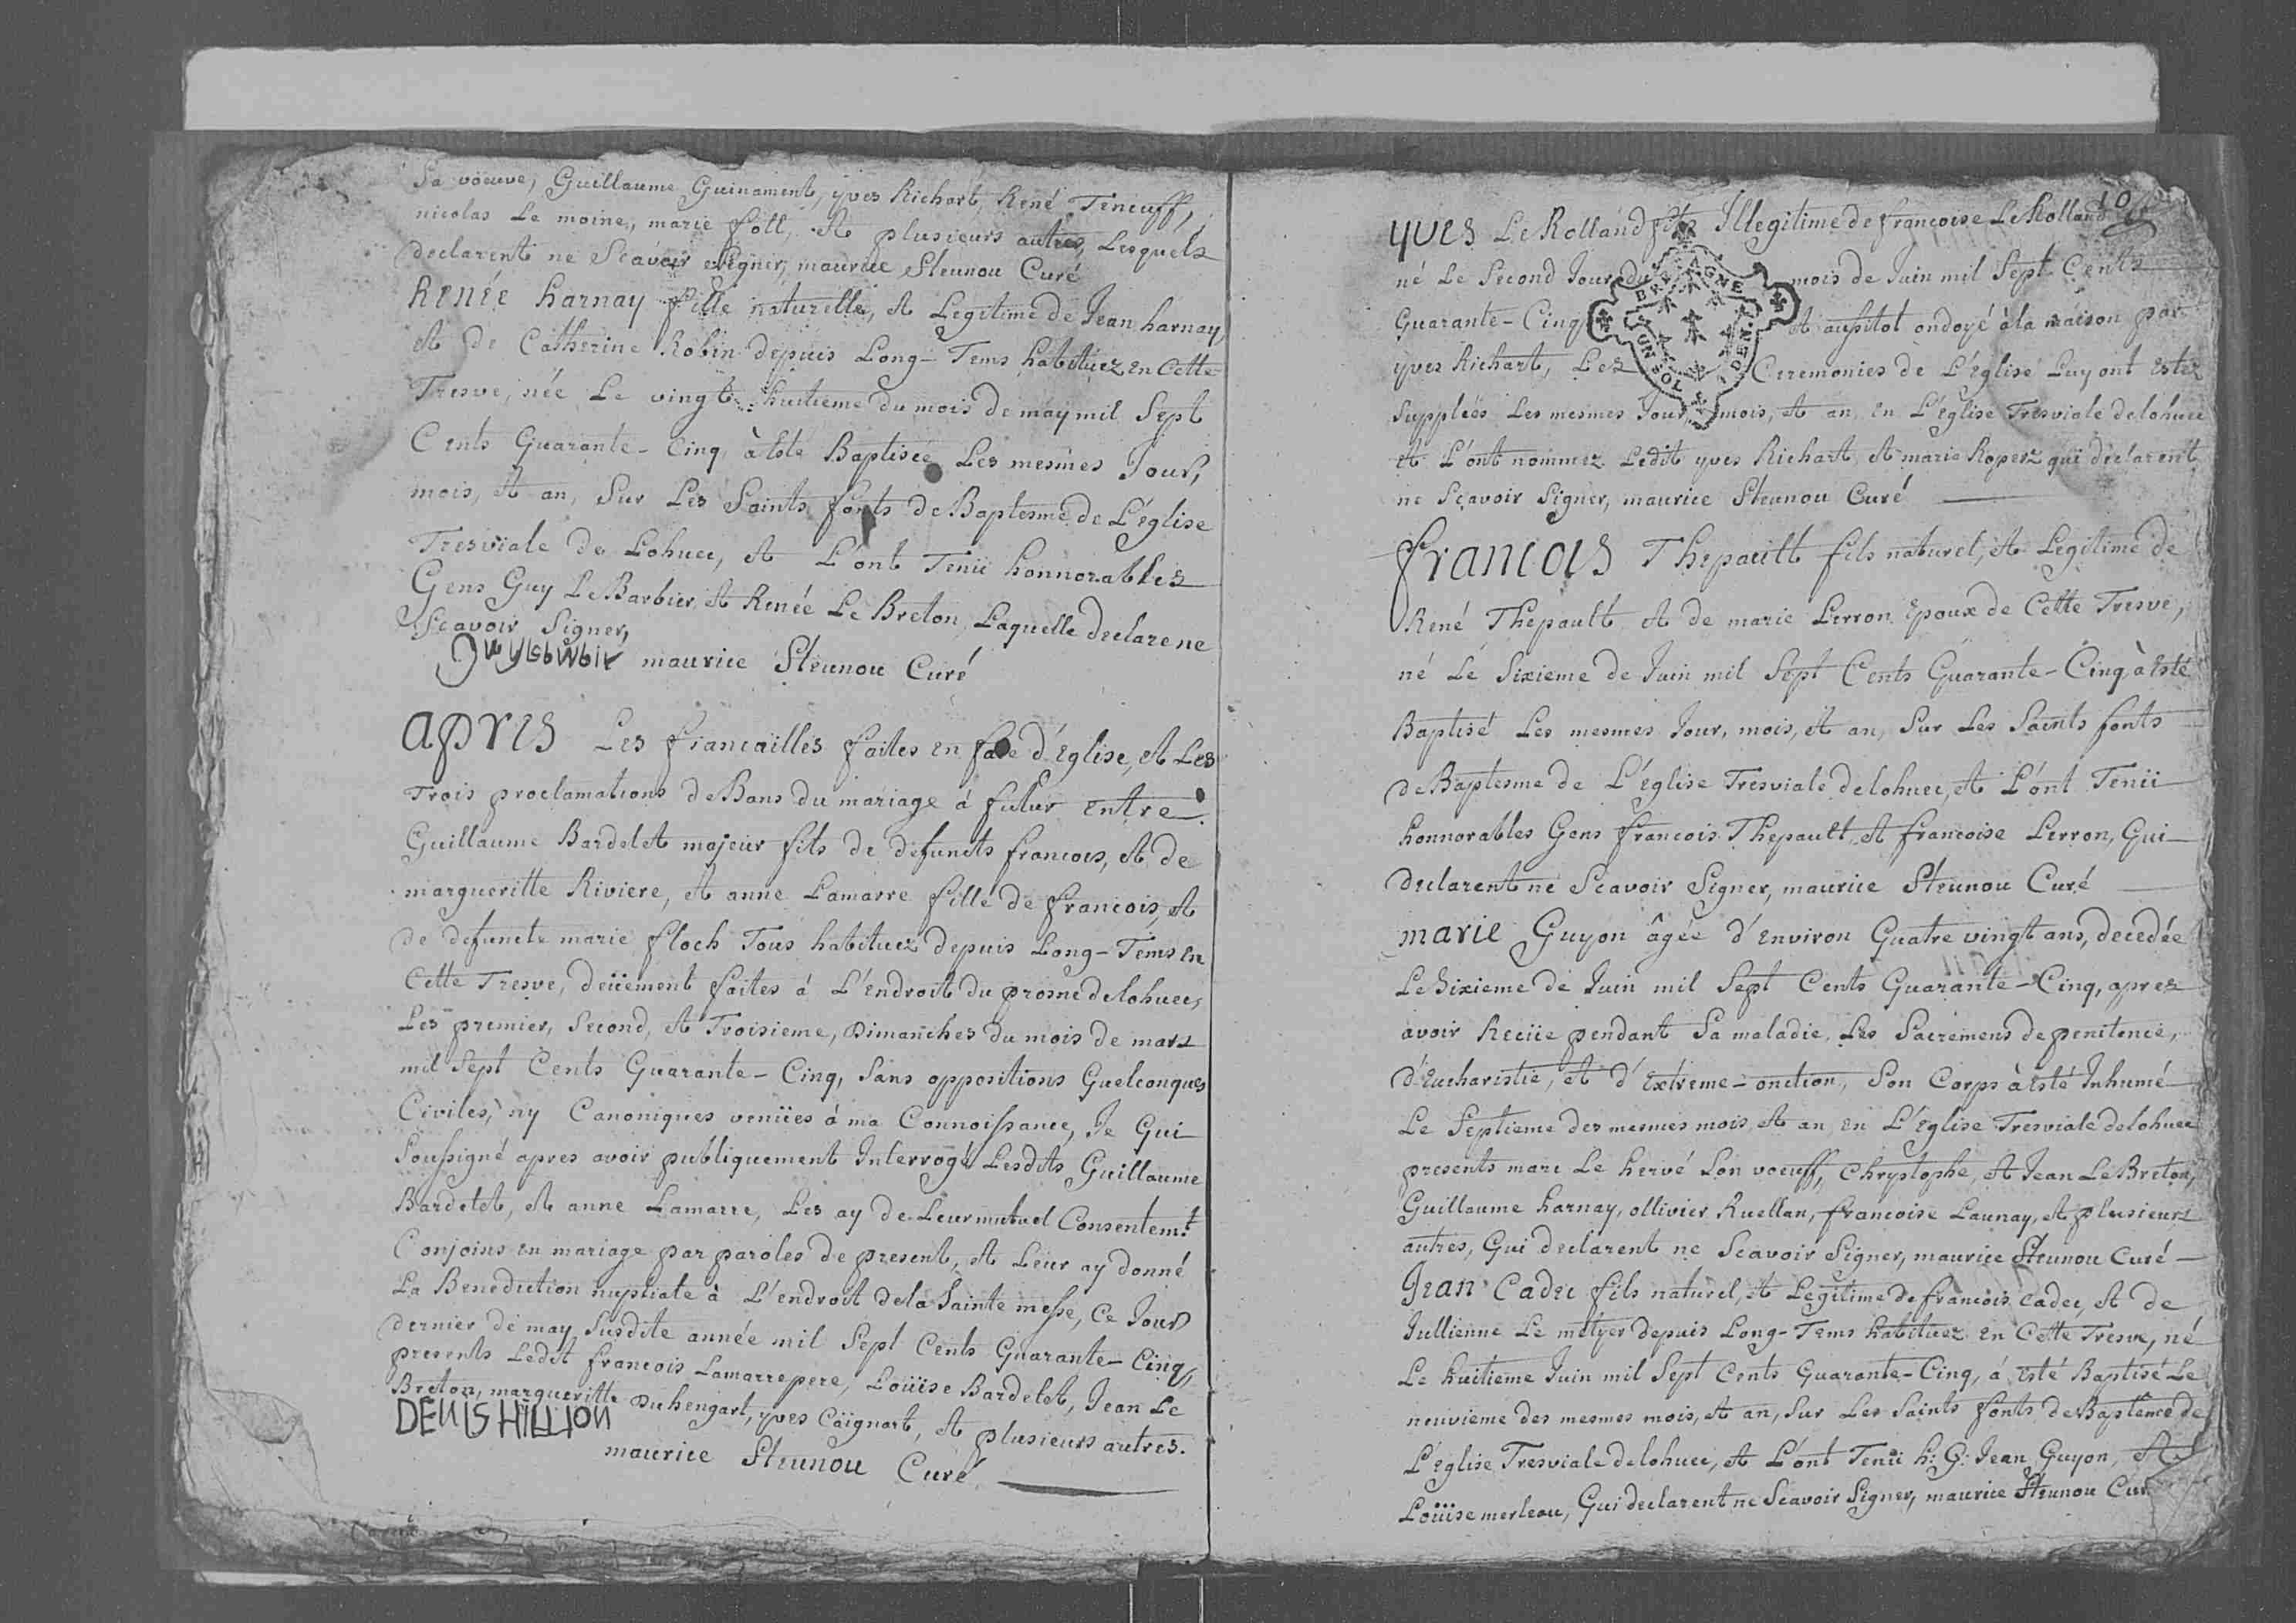 Sa voeuve, Guillaume Guinament, yves Richart, René Teneuff,
nicolas Le moine, marie foll, Et plusieurs autres, Lesquels
declarent ne Scavoir Signer, maurice Steunou Curé
Renée harnay fille naturelle, Et Legitime de Jean harnay,
Et de Catherine Robin depuis Long-Tems habituez En Cette
Tresve, née Le vingt-huitieme du mois de may mil Sept
Cents Quarante-Cinq à Esté Baptisée Les mesmes Jour,
mois, Et an, Sur Les Saints fonts de Baptesme de L'église
Tresviale de Lohuec, Et L'ont Tenü honnorables
Gens Guy Le Barbier, Et Renée Le Breton, Laquelle declare ne
Scavoir Signer,
maurice Steunou Curé
apres Les fiancailles faites en face d'Eglise, Et Les
Trois proclamations de Bans du mariage à futur Entre
Guillaume Bardelet majeur fils de defuncts francois, Et de
margueritte Riviere, Et anne Lamarre fille de francois, Et
de defuncte marie floch Tous habituez depuis Long-Tems En
Cette Tresve, deüement faites à L'Endroit du prosne de lohuec,
Les premier, Second, Et Troisieme, Dimanches du mois de mars
mil Sept Cents Quarante-Cinq, Sans oppositions Quelconques
Civiles, ny Canoniques venües à ma Connoissance, Je Qui
Soussigné apres avoir publiquement Interrogé Lesdits Guillaume
Bardelet, Et anne Lamarre, Les ay de Leur mutuel Consentemt
Conjoins en mariage par paroles de present, Et Leur ay donné
La Benediction nuptiale à L'endroit de la Sainte messe, Ce Jour
dernier de may Susdite année mil Sept Cents Quarante-Cinq,
presents Ledit francois Lamarre pere, Loüise Bardelet, Jean Le
Breton, margueritte Duhengart, yves Coignart, Et plusieurs autres.
DENIS HILLION
maurice Steunou Curé
10
yves Le Rolland fils Illegitime de francoise Le Rolland
né Le Second Jour du mois de Juin mil Sept Cents
Quarante-Cinq Et aussitot ondoyé à la maison par
yves Richart, Les Ceremonies de L'Eglise Luy ont Estez
Suppléés Les mesmes Jour, mois, Et an, En L'Eglise Tresviale de lohuec
Et L'ont nommez Ledit yves Richart, Et marie Roperz qui declarent
ne Scavoir Signer, maurice Steunou Curé
BRETAGNE
UN SOL
DEN.
francois Thepault fils naturel, Et Legitime de
René Thepault Et de marie Perron Epoux de Cette Tresve,
né Le Sixieme de Juin mil Sept Cents Quarante-Cinq à Esté
Baptisé Les mesmes Jour, mois, Et an, Sur Les Saints fonts
de Baptesme de L'église Tresviale de lohuec, Et L'ont Tenü
honnorables Gens francois Thepault, Et francoise Perron, Qui
declarent ne Scavoir Signer, maurice Steunou Curé
marie Guyon âgée d'Environ Quatre vingt ans, decedée
Le Sixieme de Juin mil Sept Cents Quarante-Cinq, apres
avoir Recüe pendant Sa maladie, Les Sacremens de penitence,
d'Eucharistie, Et d'Extrême-onction, Son Corps à Esté Inhumé
Le Septieme des mesmes mois, Et an, En L'Eglise Tresviale de lohuec
presents marc Le hervé Son voeuff, Chrystophe, Et Jean Le Breton,
Guillaume harnay, ollivier Ruellan, francoise Launay, Et plusieurs
autres, Qui declarent ne Scavoir Signer, maurice Steunou Curé
Jean Cadec fils naturel, Et Legitime de francois Cadec, Et de
Jullienne Le metyer depuis Long-Tems habituez En Cette Tresve, né
Le huitieme Juin mil Sept Cents Quarante-Cinq, à Esté Baptisé Le
neuvieme des mesmes mois, Et an, Sur Les Saints fonts de Baptême de
L'Eglise Tresviale de lohuec, Et L'ont Tenü h: G: Jean Guyon, Et
Loüise merleau, Qui declarent ne Scavoir Signer, maurice Steunou Cur